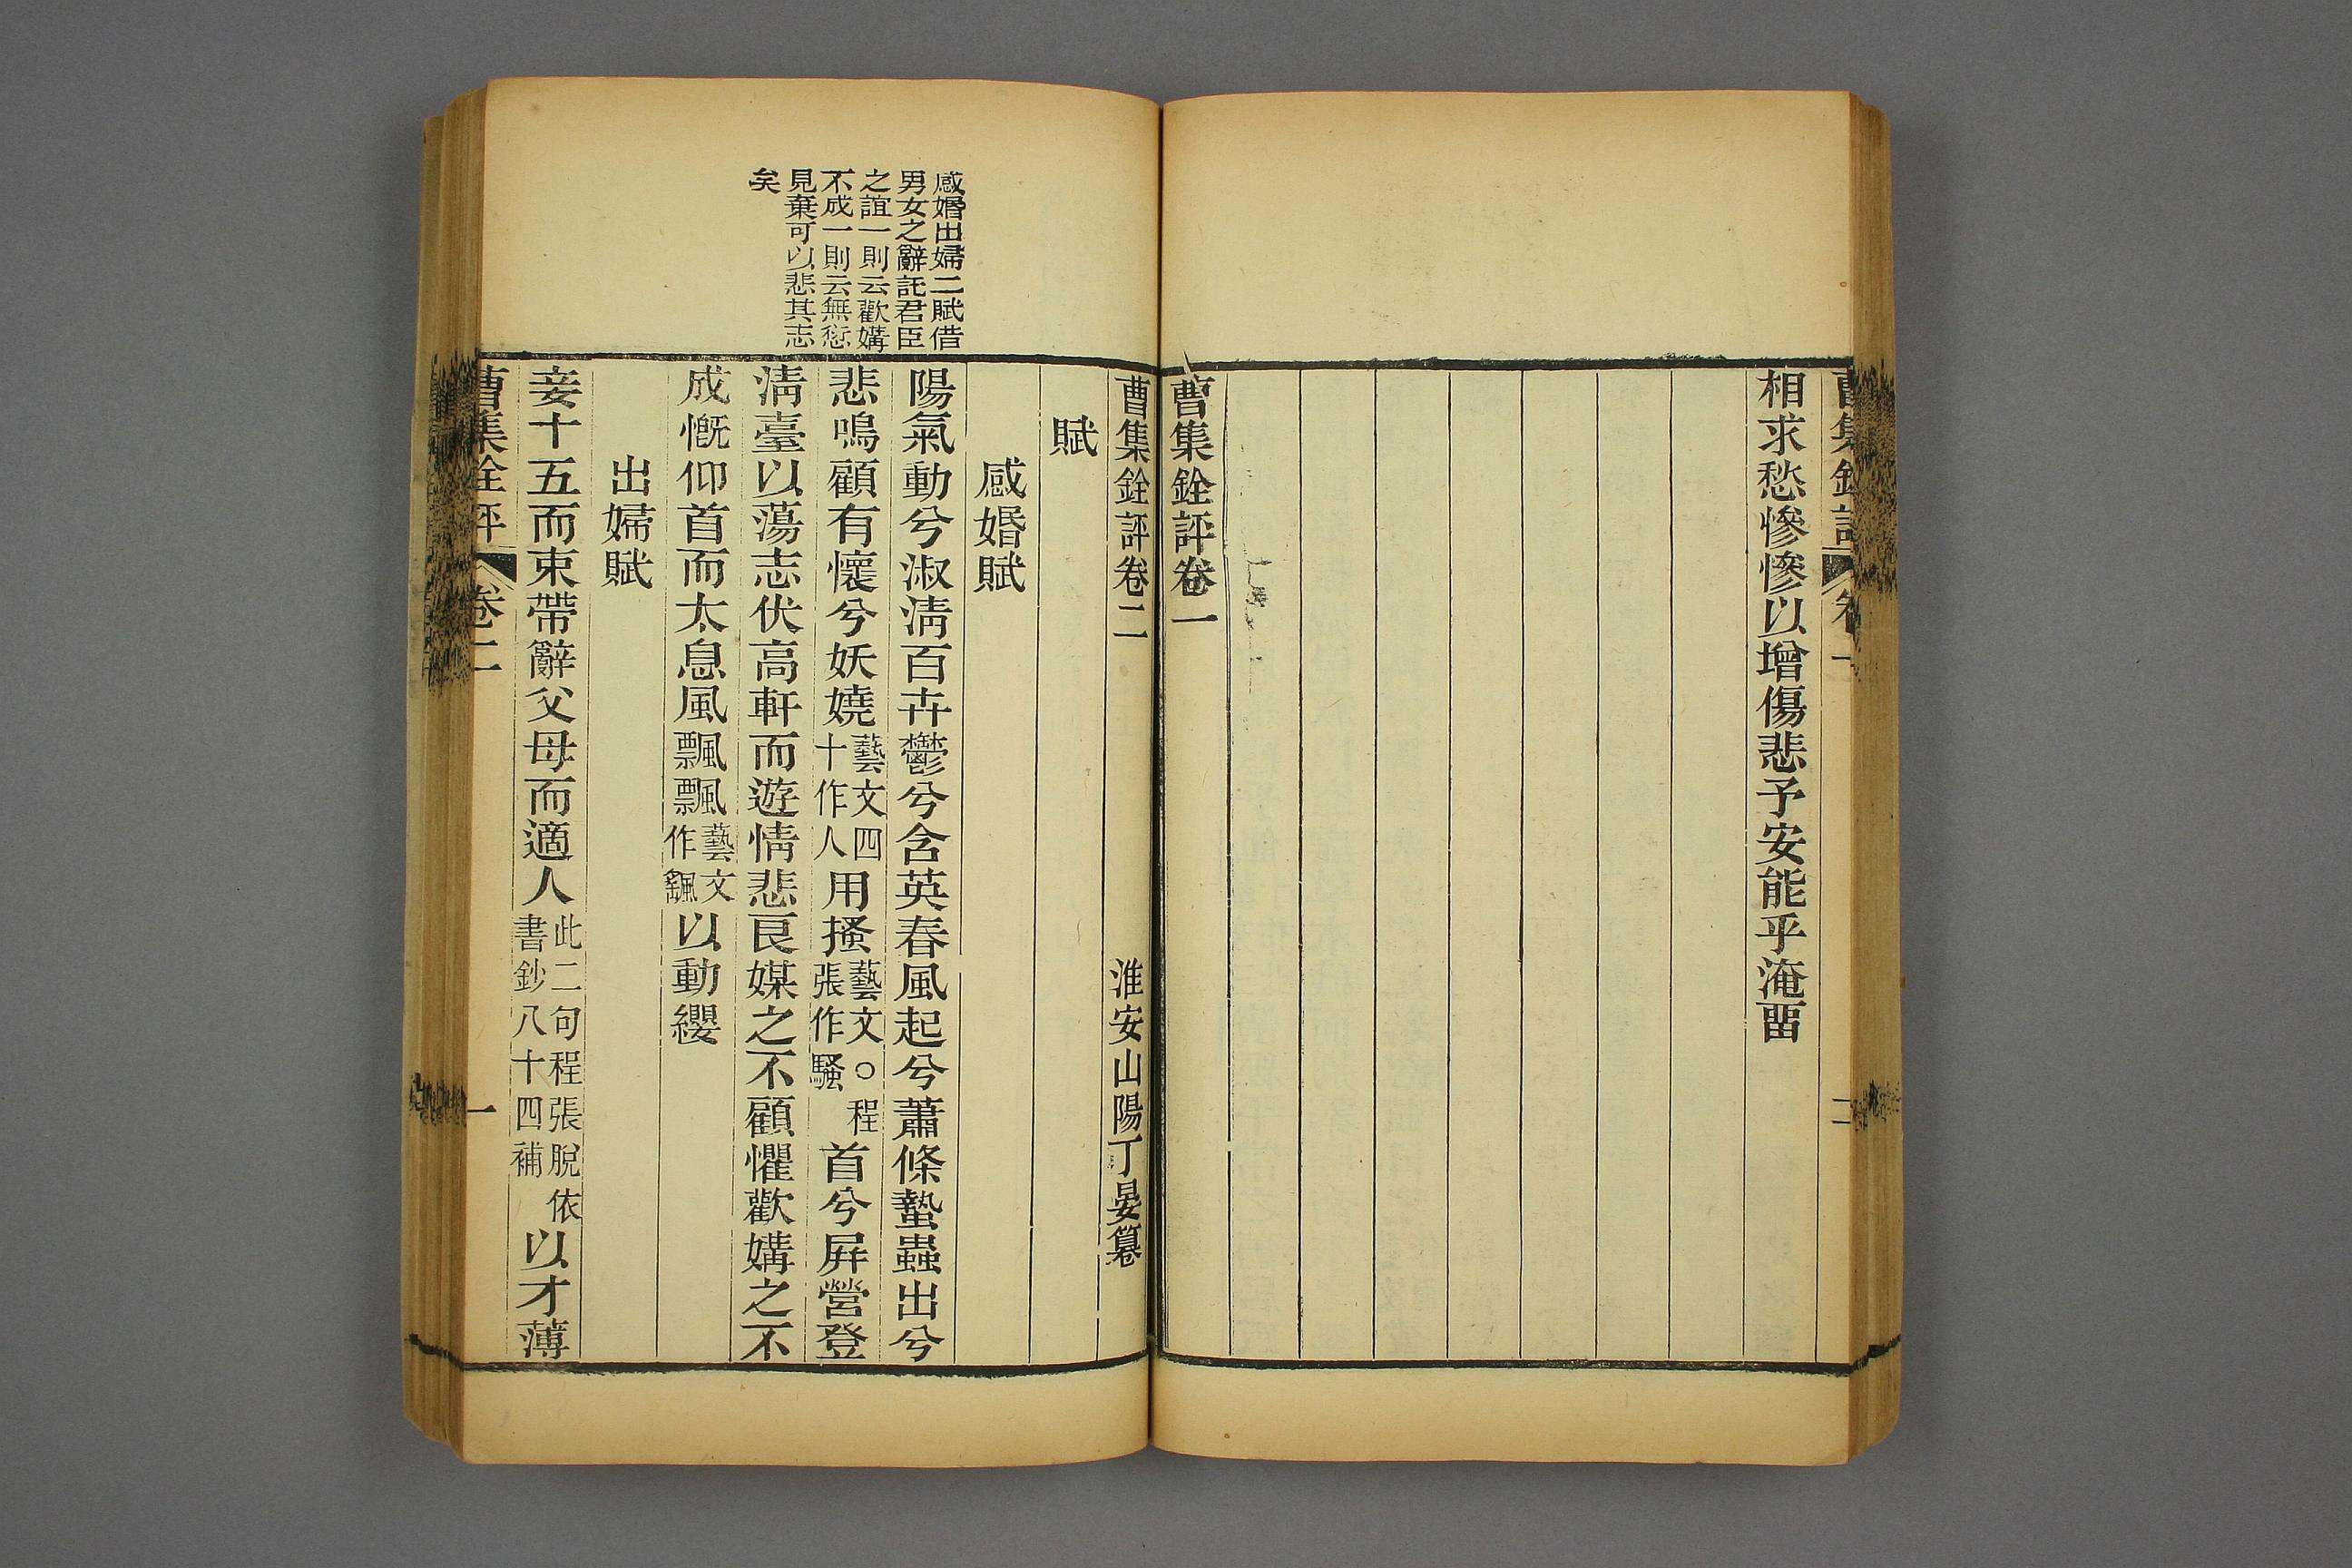 曹集銓評 卷一 二
相求愁慘慘以增傷悲予安能乎淹畱
曹集銓評卷一
曹集銓評卷二 淮安山陽丁晏纂
賦
感婚賦
陽氣動兮淑淸百卉鬱兮含英春風起兮蕭條蟄蟲出兮
悲鳴顧有懷兮妖嬈藝文四十作人用搔藝文○程張作騷首兮屛營登
淸臺以蕩志伏高軒而遊情悲良媒之不顧懼歡媾之不
成慨仰首而太息風飄飄藝文作飖以動纓
出婦賦
妾十五而束帶辭父母而適人此二句程張脫依書鈔八十四補以才薄
曹集銓評 卷二 一
感婚出婦二賦借
男女之辭託君臣
之誼一則云歡媾
不成一則云無愆
見棄可以悲其志
矣